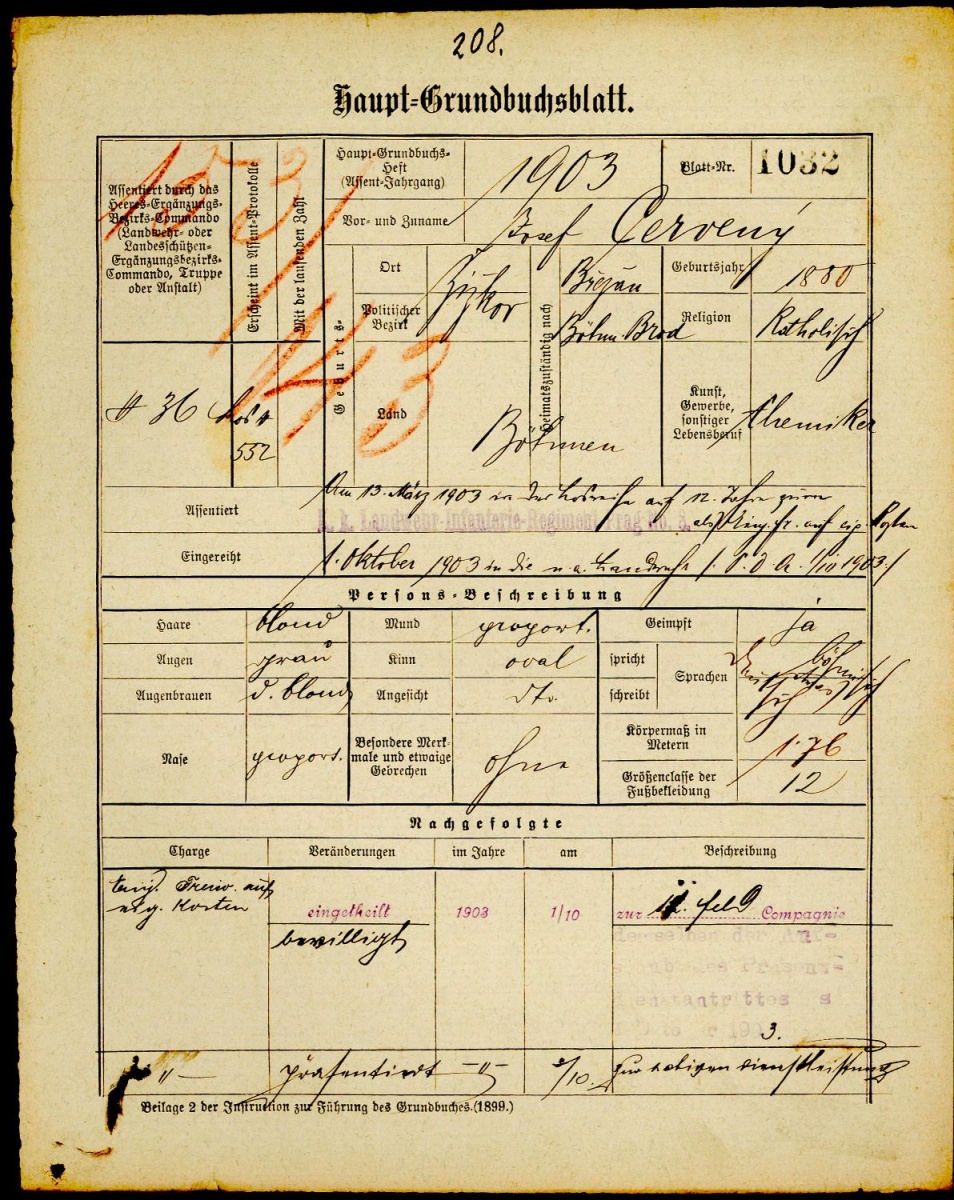 208.
Haupt-Grundbuchsblatt.
Assentiert durch das
Heeres-Ergänzungs-
Bezirks-Commando
(Landwehr- oder
Landesschützen-
Ergänzungsbezirks-
Commando, Truppe
oder Anstalt)
Erscheint im Assent-Protokolle
Mit der laufenden Zahl
Haupt-Grundbuchs-
Heft
(Assent-Jahrgang)
1903
Blatt-Nr. 1032
Vor- und Zuname
Josef Červený
Geburts-
Ort
Žižkov
Heimatszuständig nach
Břežan
Geburtsjahr
1880
Politischer
Bezirk
Böhm Brod
Religion
Katholisch
# 36
Los #
552
Land
Böhmen
Kunst,
Gewerbe,
sonstiger
Lebensberuf
Chemiker
Assentiert
Am 13. März 1903 in der Losreihe auf 12 Jahre zum
k. k. Landwehr-Infanterie-Regiment Prag No. 8.
als Einj. Fr. auf eig. Kosten
Eingereiht
1. Oktober 1903 in die n. a. Landwehr
Persons-Beschreibung
Haare
blond
Mund
proport.
Geimpft
ja
Augen
grau
Kinn
oval
spricht
schreibt
Sprachen
böhmisch
Augenbrauen
d. blond
Angesicht
dto.
Nase
proport.
Besondere Merk-
male und etwaige
Gebrechen
ohne
Körpermaß in
Metern
1·76
Größenclasse der
Fußbekleidung
12
Nachgefolgte
Charge
Veränderungen
im Jahre
am
Beschreibung
Einj. Freiw. auf
eig. Kosten
eingetheilt
1903
1/10
zur 11. Feld Compagnie
bewilligt
derselben der Auf-
schub des Präsenz-
dienstantrittes
3.
-〃-
präsentiert
-〃-
/10.
zur aktiven Dienstleistung
Beilage 2 der Instruction zur Führung des Grundbuches.(1899.)